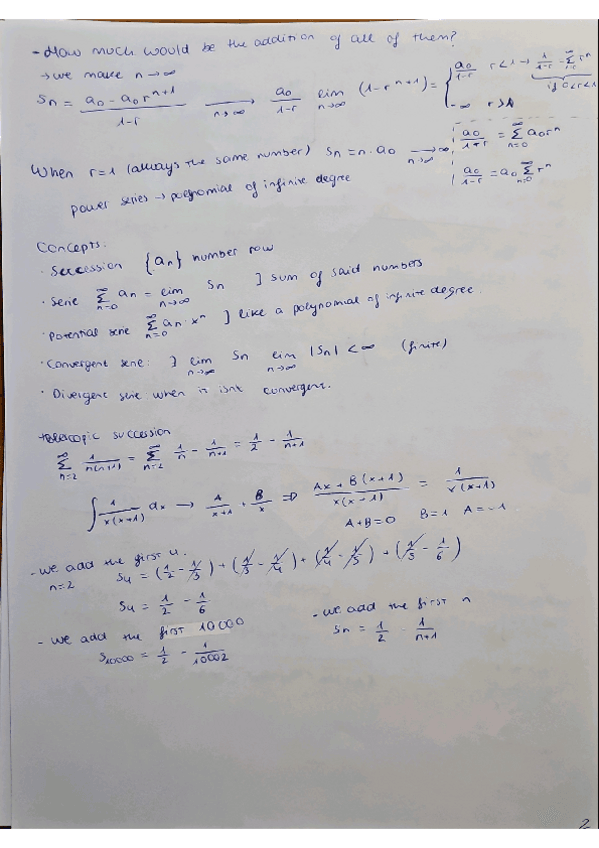 - How much would be the addition of all of them?
→ we make n→∞
Sn = (a0 - a0 r^(n+1))/(1-r) ⟶ n→∞ a0/(1-r) lim n→∞ (1-r^(n+1)) = { a0/(1-r) r<1 → 1/(1-r) = Σ r^n if 0<r<1
-∞ r>1
When r=1 (always the same number) Sn = n·a0 ⟶ n→∞ ∞
a0/(1-r) = Σ n=0 ∞ a0 r^n
power series → polynomial of infinite degree
a0/(1-r) = a0 Σ n=0 ∞ r^n
Concepts:
· Succession {an} number row
· Serie Σ n=0 ∞ an = lim n→∞ Sn ] sum of said numbers
· Potential serie Σ n=0 ∞ an·x^n ] like a polynomial of infinite degree.
· Convergent serie: ] lim n→∞ Sn lim n→∞ |Sn| < ∞ (finite)
· Divergent serie when it isnt convergent.
telescopic succession
Σ n=2 ∞ 1/(n(n+1)) = Σ n=2 ∞ 1/n - 1/(n+1) = 1/2 - 1/(n+1)
∫ 1/(x(x+1)) dx → A/(x+1) + B/x ⇒ (Ax + B(x+1))/(x(x+1)) = 1/(x(x+1))
A+B=0 B=1 A=-1
- we add the first 4.
n=2 S4 = (1/2 - 1/3) + (1/3 - 1/4) + (1/4 - 1/5) + (1/5 - 1/6)
S4 = 1/2 - 1/6
- we add the first n
Sn = 1/2 - 1/(n+1)
- we add the first 10000
S10000 = 1/2 - 1/10002